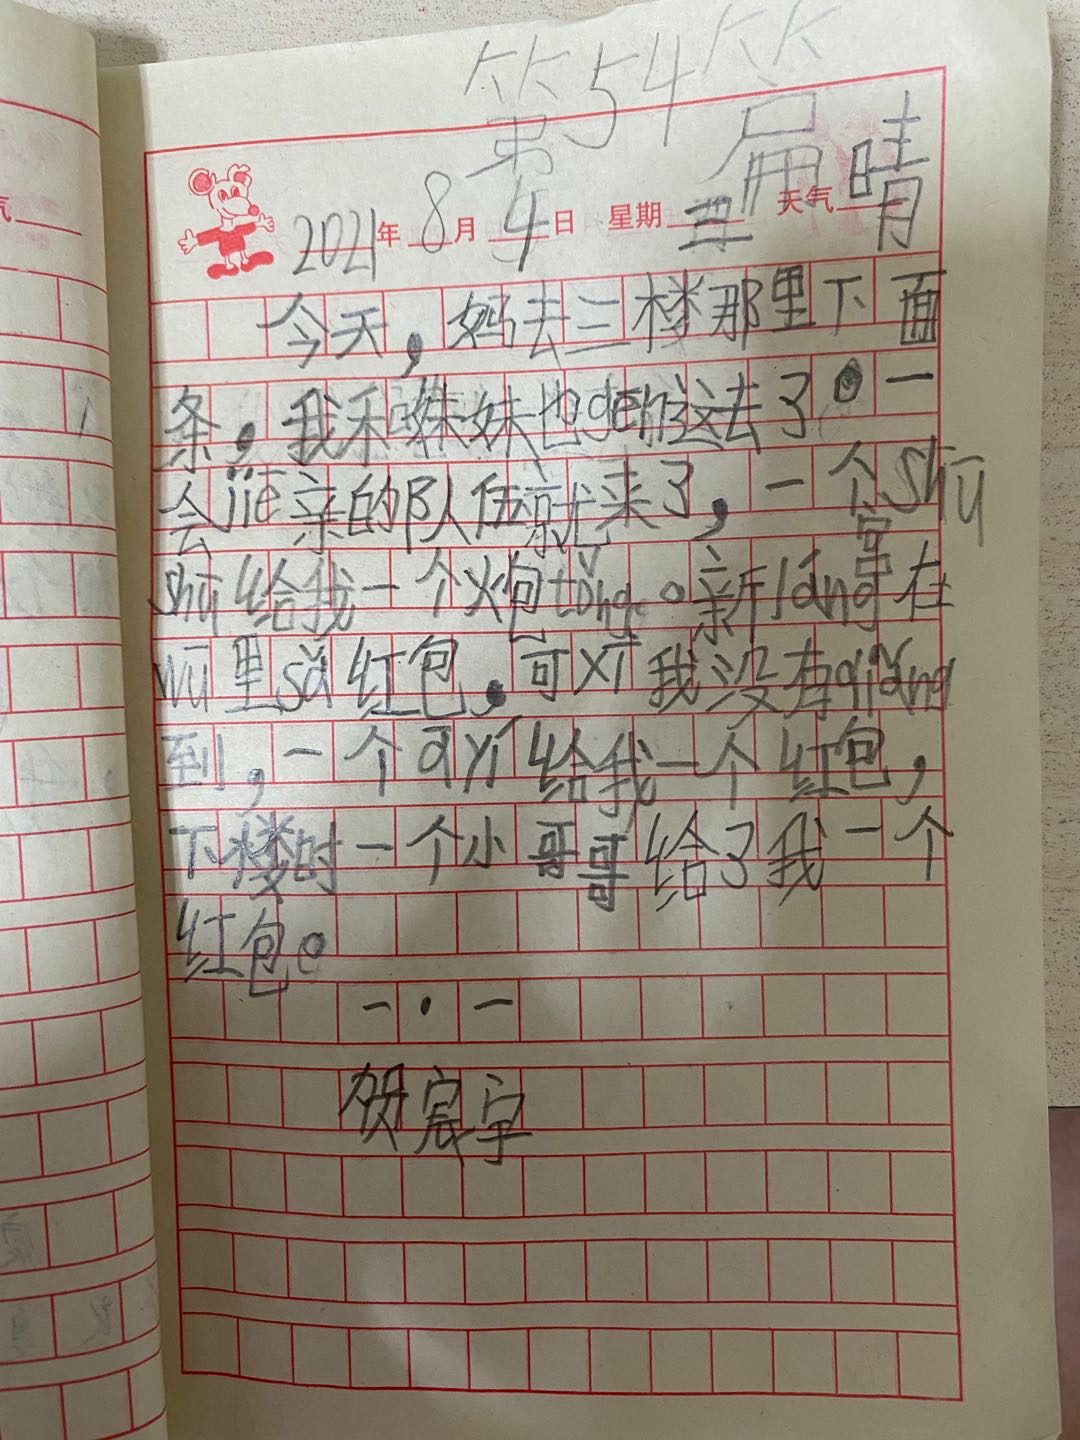 第54篇
2021年8月4日 星期三 天气晴
今天，妈去三楼那里下面
条，我和妹妹也gēn这去了。一
会jiē亲的队伍就来了，一个shū
shū给我一个炮tǒng。新láng宫在
wū里sǎ红包，可xī我没有qiǎng
到，一个āyí给我一个红包，
下楼时一个小哥哥给了我一个
红包。
一·一
贺宸宇
气